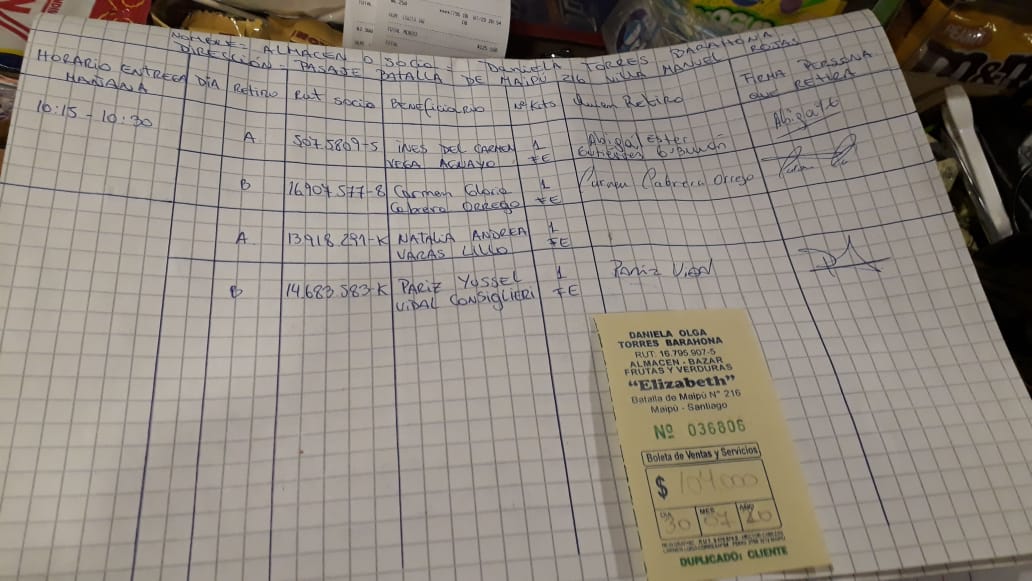 NOMBRE = ALMACEN O SOCIO = DANIELA TORRES BARAHONA
DIRECCIÓN = PASAJE BATALLA DE MAIPÚ 216 VILLA MANUEL ROJAS
HORARIO ENTREGA MAÑANA DÍA RETIRO RUT SOCIO BENEFICIARIO Nº KITS Quien Retiro FIRMA PERSONA QUE RETIRA
10:15 - 10:30
A 5075809-5 INES DEL CARMEN 1 Abigail Ester Abigail
VEGA AGUAYO FE
B 16.907.577-8 Carmen Gloria 1 Carmen Cabrera Orrego
Cabrera ORREGO FE
A 13.918.291-K NATALIA ANDREA 1
VARAS LILLO FE
B 14.683.583-K PARIZ YUSSEL 1 Pariz Vidal
VIDAL CONSIGLIERI FE
DANIELA OLGA
TORRES BARAHONA
RUT: 16.795.907-5
ALMACEN - BAZAR
FRUTAS Y VERDURAS
"Elizabeth"
Batalla de Maipú N° 216
Maipú - Santiago
Nº 036806
Boleta de Ventas y Servicios
$ 104.000
DIA MES AÑO
30 07 20
DUPLICADO: CLIENTE